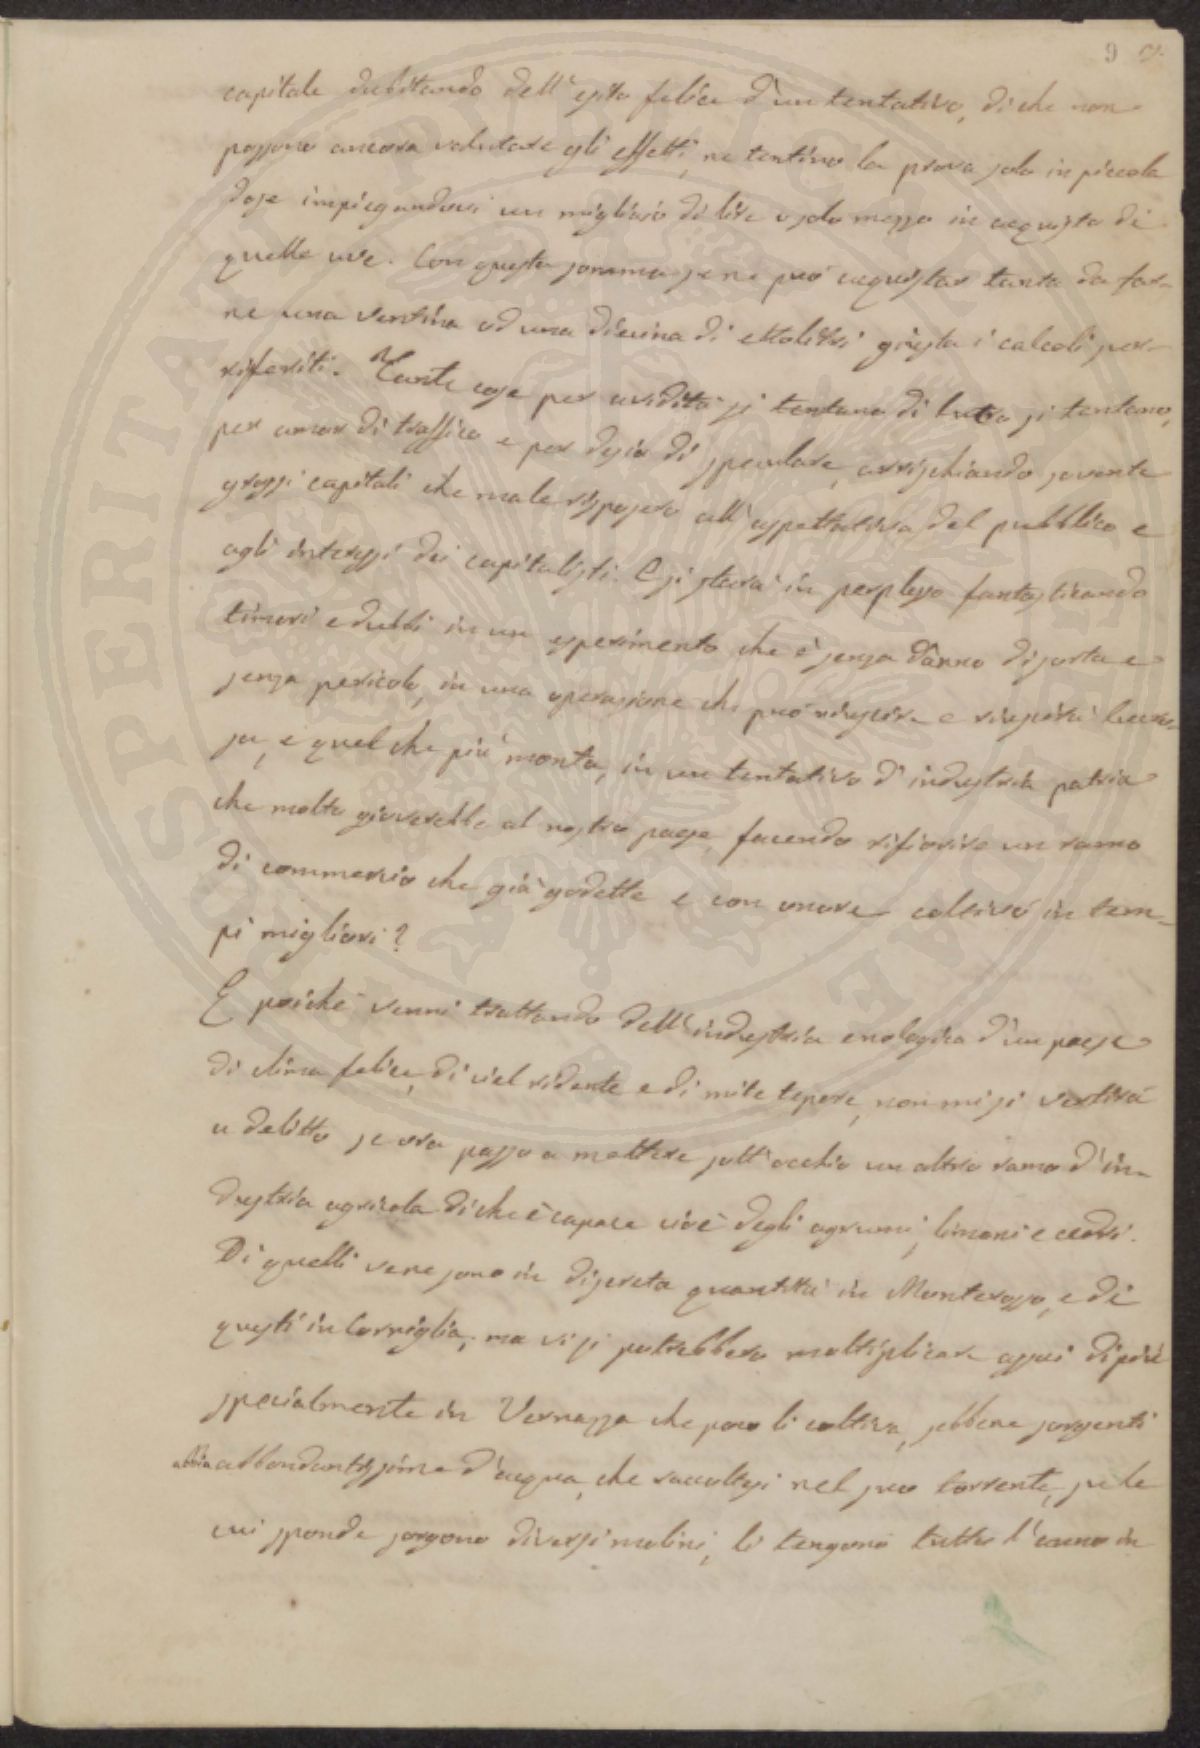 9 9.
capitale dubitando dell'esito felice d'un tentativo, di che non
possono ancora valutare gli effetti, ne tentino la prova solo in piccola
dose impiegandovi un migliaio di lire o solo mezzo in acquisto di
quelle uve. Con questa somma se ne può acquistar tanta da far-
ne una ventina od una diecina di ettolitri giusta i calcoli
riferiti. Tante cose per avidità si tentano di lucro si tentano,
per amor di traffico e per desio di speculare, arrischiando sovente
grossi capitali che male risposero all'aspettativa del pubblico e
agli interessi dei capitalisti. E si starà in perplesso fantasticando
timori e dubbi in un esperimento che è senza danno di sorta e
senza pericolo, in una operazione che può riuscire e riuscirà lucro-
sa, e quel che più monta, in un tentativo d'industria patria
che molto gioverebbe al nostro paese, facendo rifiorire un ramo
di commercio che già godette e con onore coltivò in tem-
pi migliori?
E poichè venni trattando dell'industria enologica d'un paese
di clima felice, di ciel ridente e di mite tepore, non mi si
a delitto se ora passo a mettere sott'occhio un altro ramo d'in-
dustria agricola di che è capace cioè degli agrumi, limoni e cedri.
Di quelli ve ne sono in discreta quantità in Monterosso, e di
questi in Corniglia, ma vi si potrebbero moltiplicare assai di più
specialmente in Vernazza che poco li coltiva, sebbene sorgenti
abbia abbondantissime d'acqua, che raccoltesi nel suo torrente, su le
cui sponde sorgono diversi molini, li tengono tutto l'anno in
BIBLIOTHECA PROSPERITATI PUBLICAE